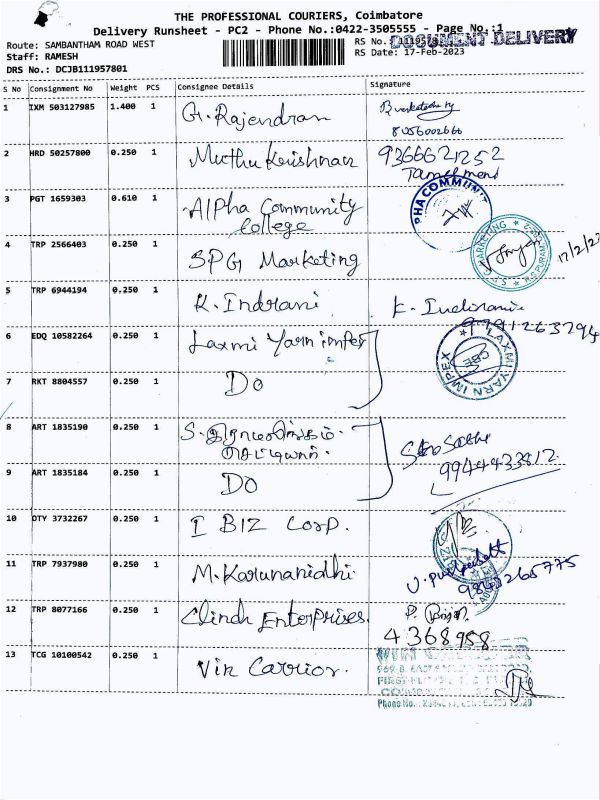 THE PROFESSIONAL COURIERS, Coimbatore
Delivery Runsheet - PC2 - Phone No.:0422-3505555 - Page No.:1
DOCUMENT DELIVERY
Route: SAMBANTHAM ROAD WEST
RS No.:
Staff: RAMESH
RS Date: 17-Feb-2023
DRS No.: DCJB111957801
S No Consignment No Weight PCS Consignee Details Signature
1 IXM 503127985 1.400 1 G. Rajendran
8056002666
2 HRD 50257800 0.250 1 Muthu Krishnan 9366621252
3 PGT 1659303 0.610 1 Alpha Community
College
PHA COMMUNIT
4 TRP 2566403 0.250 1 SPG Marketing
MARKETING
17/2/23
5 TRP 6944194 0.250 1 K. Indrani K. Indirani
9791263794
6 EDQ 10582264 0.250 1 Laxmi Yarn impex
LAXMI YARN IMPEX
CBE
7 RKT 8804557 0.250 1 Do
8 ART 1835190 0.250 1 S.
செட்டியார்.
9944433812
9 ART 1835184 0.250 1 Do
10 DTY 3732267 0.250 1 I BIZ Corp.
11 TRP 7937980 0.250 1 M. Karunanidhi
9843265775
12 TRP 8077166 0.250 1 Clindh Enterprises.
4368958
13 TCG 10100542 0.250 1 Vin Carrior.